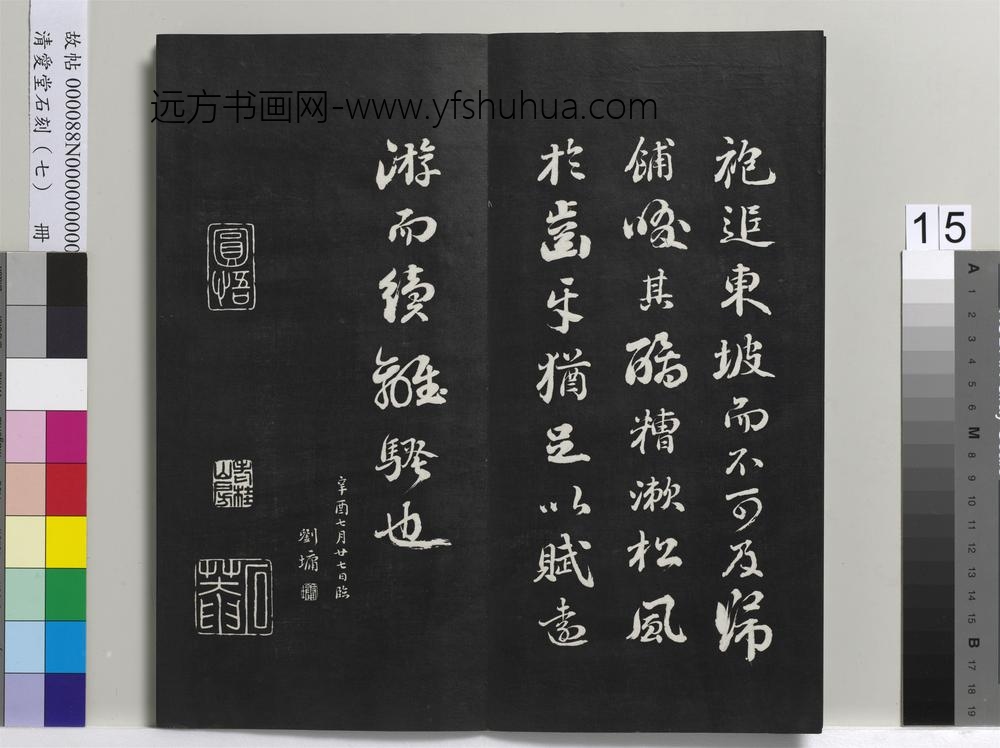 袍追東坡而不可及歸
餔啜其醨糟漱松風
於齒牙猶足以賦遠
游而續離騷也
辛酉七月廿七日臨
劉墉
圓悟
石菴
远方书画网-www.yfshuhua.com
故帖 000088N000000000
清愛堂石刻（七） 冊
15
A 1 2 3 4 5 6 M 8 9 10 11 12 13 14 15 B 17 18 19